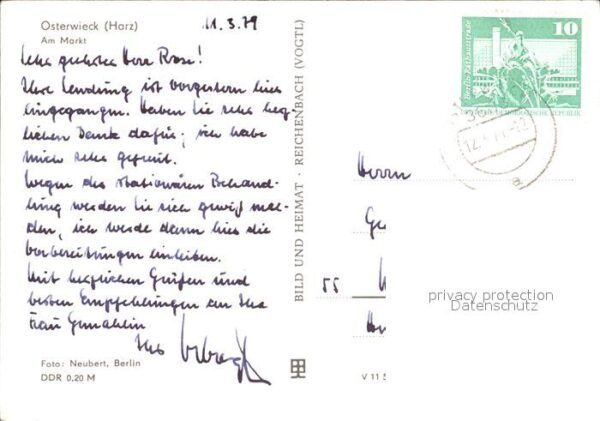 Osterwieck (Harz)
Am Markt
11.3.79
Sehr geehrter Herr Rose!
Ihre Sendung ist vorgestern hier
eingegangen. Haben Sie sehr herz-
lichen Dank dafür; ich habe
mich sehr gefreut.
Wegen der stationären Behand-
lung werden Sie sich gewiß mel-
den, ich werde dann hier die
Vorbereitungen einleiben.
Mit herzlichen Grüßen und
besten Empfehlungen an Ihre
Frau Gemahlin
Ihr
Foto: Neubert, Berlin
DDR 0,20 M
BILD UND HEIMAT · REICHENBACH (VOGTL)
V 11
10
Berlin, Rathausstraße
DEUTSCHE DEMOKRATISCHE REPUBLIK
Herrn
55
privacy protection
Datenschutz